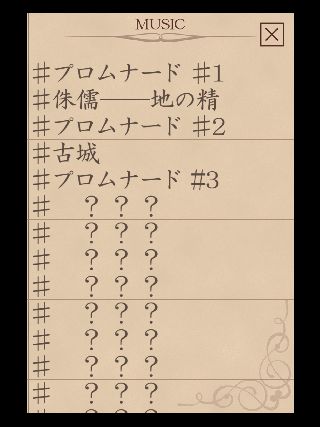 MUSIC
#プロムナード #1
#侏儒――地の精
#プロムナード #2
#古城
#プロムナード #3
# ? ? ?
# ? ? ?
# ? ? ?
# ? ? ?
# ? ? ?
# ? ? ?
# ? ? ?
# ? ? ?